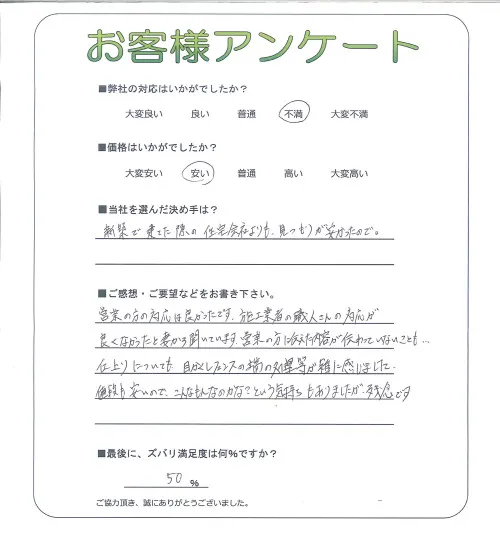 お客様アンケート
■弊社の対応はいかがでしたか？
大変良い 良い 普通 不満 大変不満
■価格はいかがでしたか？
大変安い 安い 普通 高い 大変高い
■当社を選んだ決め手は？
新築で建てた際の住宅会社よりも、見つもりが安かったので。
■ご感想・ご要望などをお書き下さい。
営業の方の対応は良かったです。施工業者の職人さんの対応が
良くなかったと妻から聞いています。営業の方に伝えた内容が伝わっていないことも…
仕上りについても、目かくしフェンスの端の処理等が雑に感じまして、
値段も安いので、こんなもんなのかな？という気持ちもありましたが、残念です
■最後に、ズバリ満足度は何%ですか？
50 %
ご協力頂き、誠にありがとうございました。